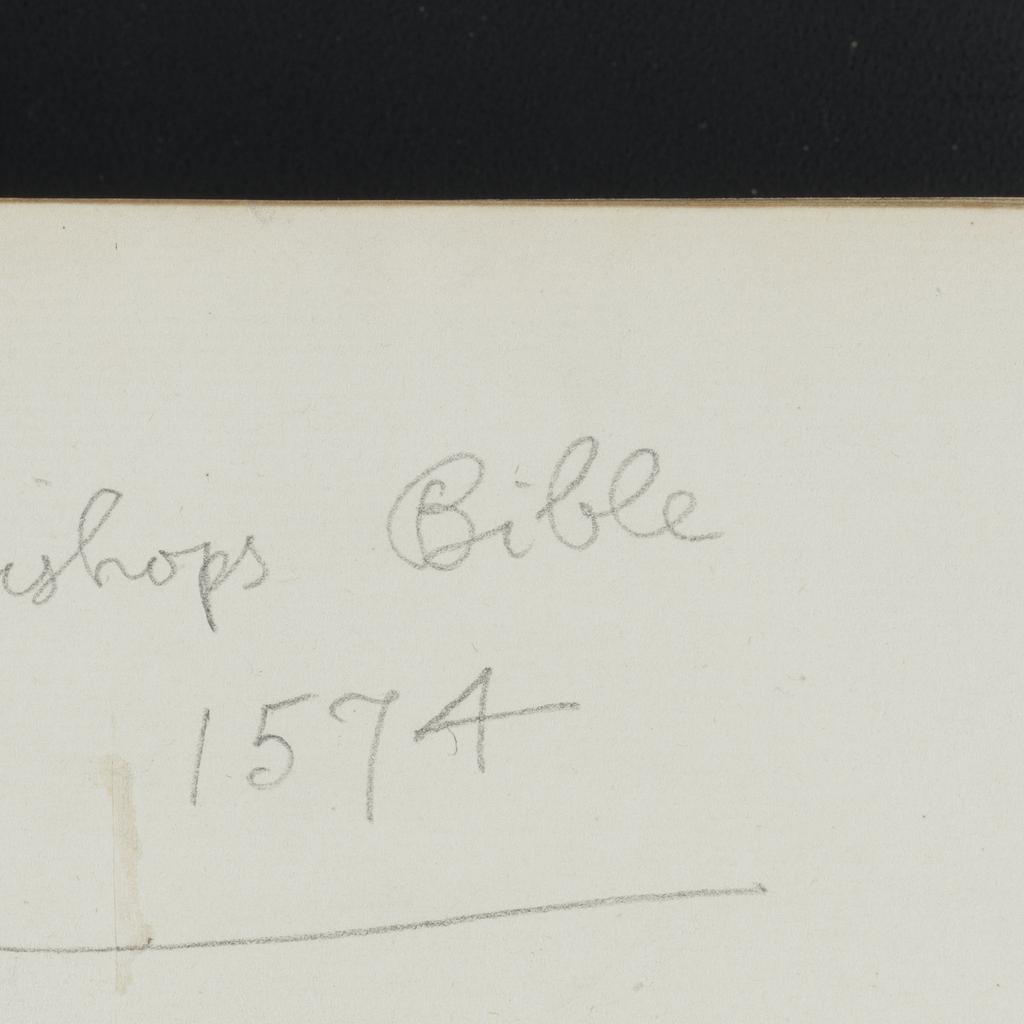 ishops Bible
1574